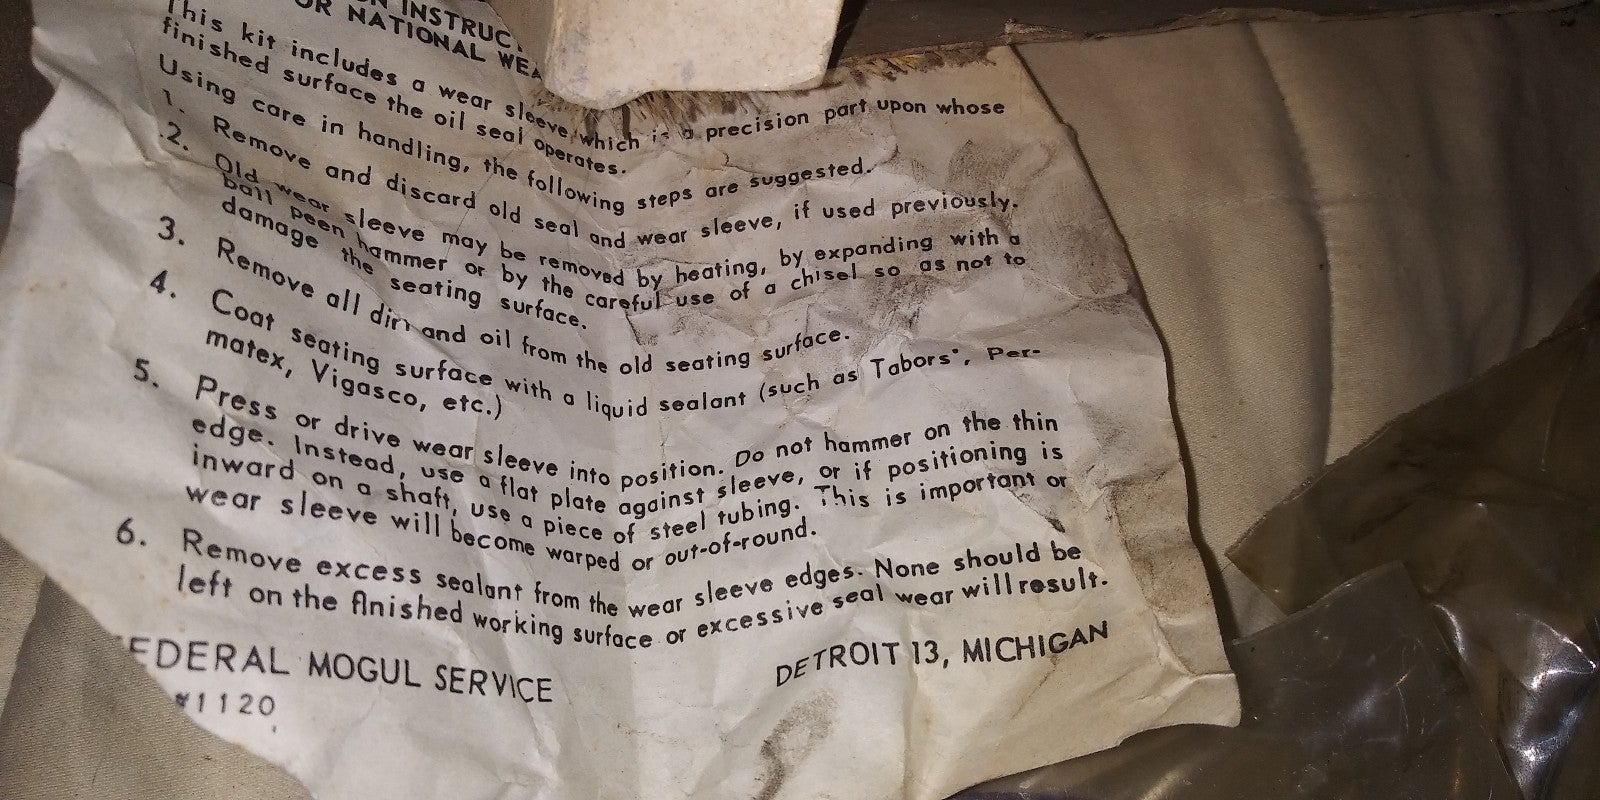 INSTRUC
OR NATIONAL WEA
This kit includes a wear sleeve which is a precision part upon whose
finished surface the oil seal operates.
Using care in handling, the following steps are suggested.
1. Remove and discard old seal and wear sleeve, if used previously.
2. Old wear sleeve may be removed by heating, by expanding with a
ball peen hammer or by the careful use of a chisel so as not to
damage the seating surface.
3. Remove all dirt and oil from the old seating surface.
4. Coat seating surface with a liquid sealant (such as Tabors', Per-
matex, Vigasco, etc.)
5. Press or drive wear sleeve into position. Do not hammer on the thin
edge. Instead, use a flat plate against sleeve, or if positioning is
inward on a shaft, use a piece of steel tubing. This is important or
wear sleeve will become warped or out-of-round.
6. Remove excess sealant from the wear sleeve edges. None should be
left on the finished working surface or excessive seal wear will result.
FEDERAL MOGUL SERVICE DETROIT 13, MICHIGAN
1120